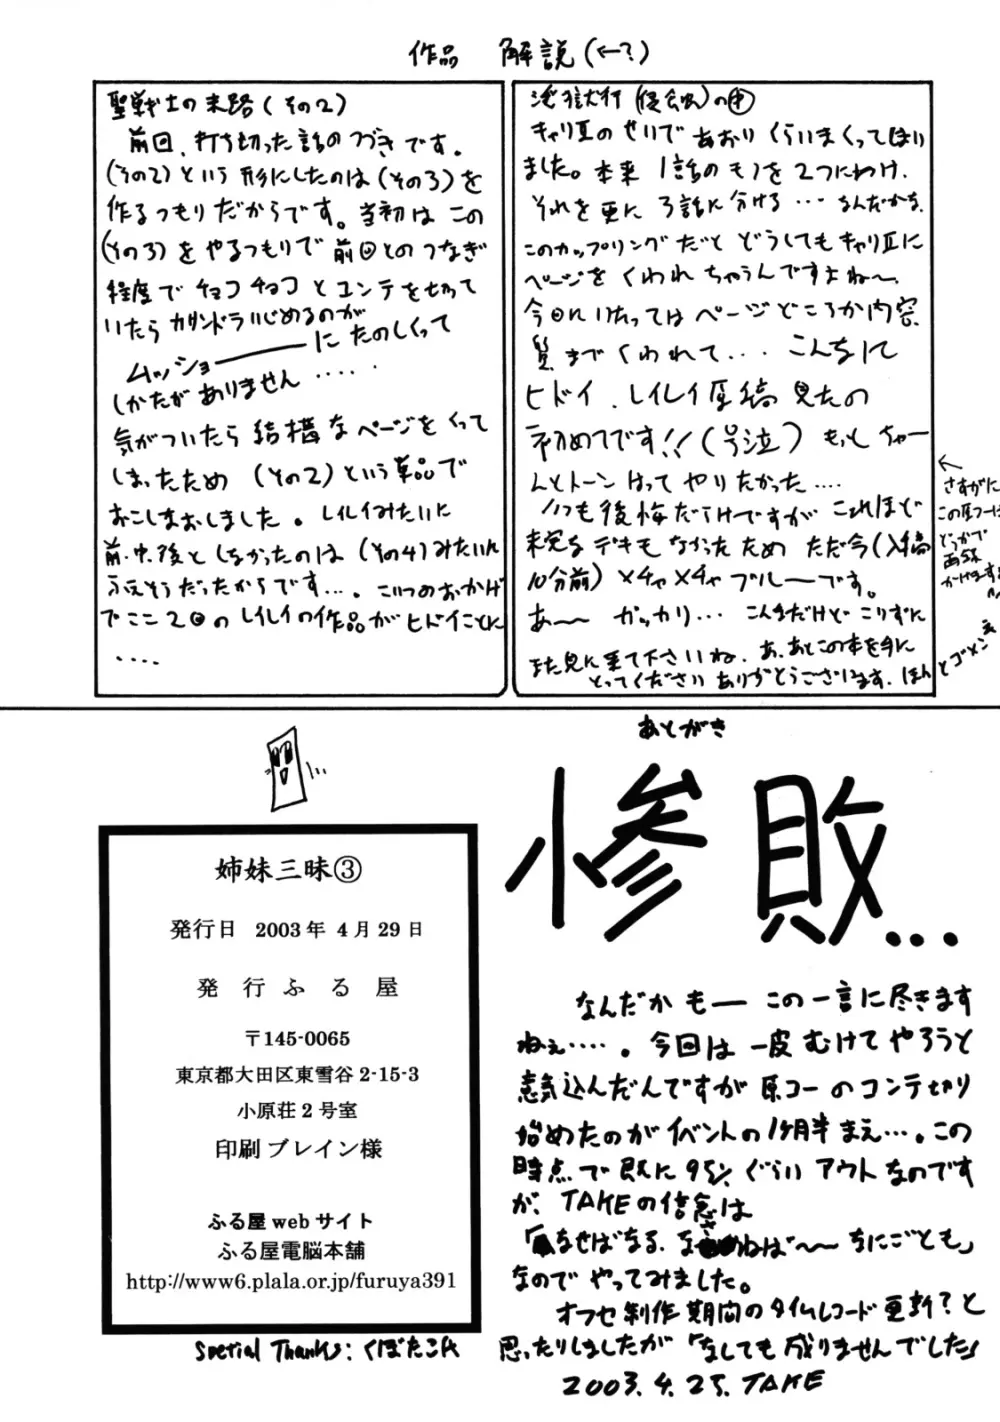 作品 解説(←?)
聖戦士の末路(その2)
前回、打ち切った話のつづきです。
(その2)という形にしたのは(その3)を
作るつもりだからです。当初はこの
(その3)をやるつもりで前回とのつなぎ
程度でチョコチョコとコンテを切って
いたらカサンドラいじめるのが
ムッショーーーーに たのしくって
しかたがありません‥‥‥
気がついたら結構なページをくって
しまったため (その2)という単品で
おこしなおしました。レイレイみたいに
前・中・後としなかったのは(その4)みたいに
ふえそうだったからです‥‥。こいつのおかげ
でここ2回のレイレイの作品がヒドイことに
‥‥
キャリIIのせいであおりくらいまくってはいり
ました。本来1話のモノを2つにわけ、
それを更に3話に分ける‥‥なんだかな。
このカップリングだとどうしてもキャリIIに
ページをくわれちゃうんですよね〜
今回にいたってはページどころか内容
質までくわれて‥‥ こんなに
ヒドイ、レイレイ原稿見たの
初めてです!!(号泣) もっとちゃー
んとトーンはってやりたかった‥‥
いつも後悔だらけですがこれほど
未完なデキもなかったため ただ今(入稿
10分前)メチャメチャブルーです。
あ〜 ガッカリ‥‥ こんなだけどこりずに
また見に来て下さいね。あ、あとこの本を手に
とってくださいありがとうございます。ほんとゴメンネ
←
さすがに
この原コーは
どっかで
再録
かけます
あとがき
惨敗...
なんだか もー この一言に尽きます
ねぇ‥‥‥。今回は一皮むけてやろうと
意気込んだんですが原コーのコンテ切り
始めたのがイベントの1ヶ月半まえ‥‥。この
時点で既に95%ぐらいアウトなのです
が、TAKEの信念は
「なせばなる、なさねば〜〜なにごとも」
なのでやってみました。
オフセ制作期間のタイムレコード更新?と
思ったりしましたが「なしても成りませんでした」
2003.4.25.TAKE
姉妹三昧③
発行日 2003年4月29日
発行ふる屋
〒145-0065
東京都大田区東雪谷2-15-3
小原荘2号室
印刷 ブレイン様
ふる屋webサイト
ふる屋電脳本舗
http://www6.plala.or.jp/furuya391
Spetial Thanks: くぼたこん